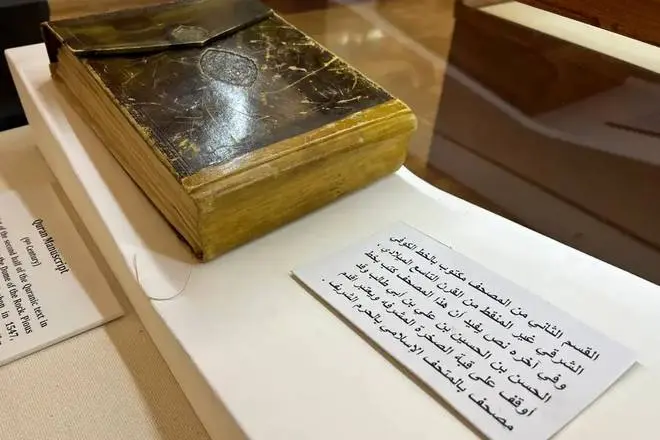 Quran Manuscript
(9th Century)
of the second half of the Quranic text in
the Dome of the Rock. Pious
in 1547,
القسم الثاني من المصحف مكتوب بالخط الكوفي
الشرقي غير المنقط من القرن التاسع الميلادي ،
وفي آخره نص يفيد ان هذا المصحف كتب بخط
الحسن بن الحسين بن علي بن ابي طالب وقد
أوقف على قبة الصخرة المشرفه ويعتبر اقدم
مصحف بالمتحف الإسلامي بالحرم الشريف .